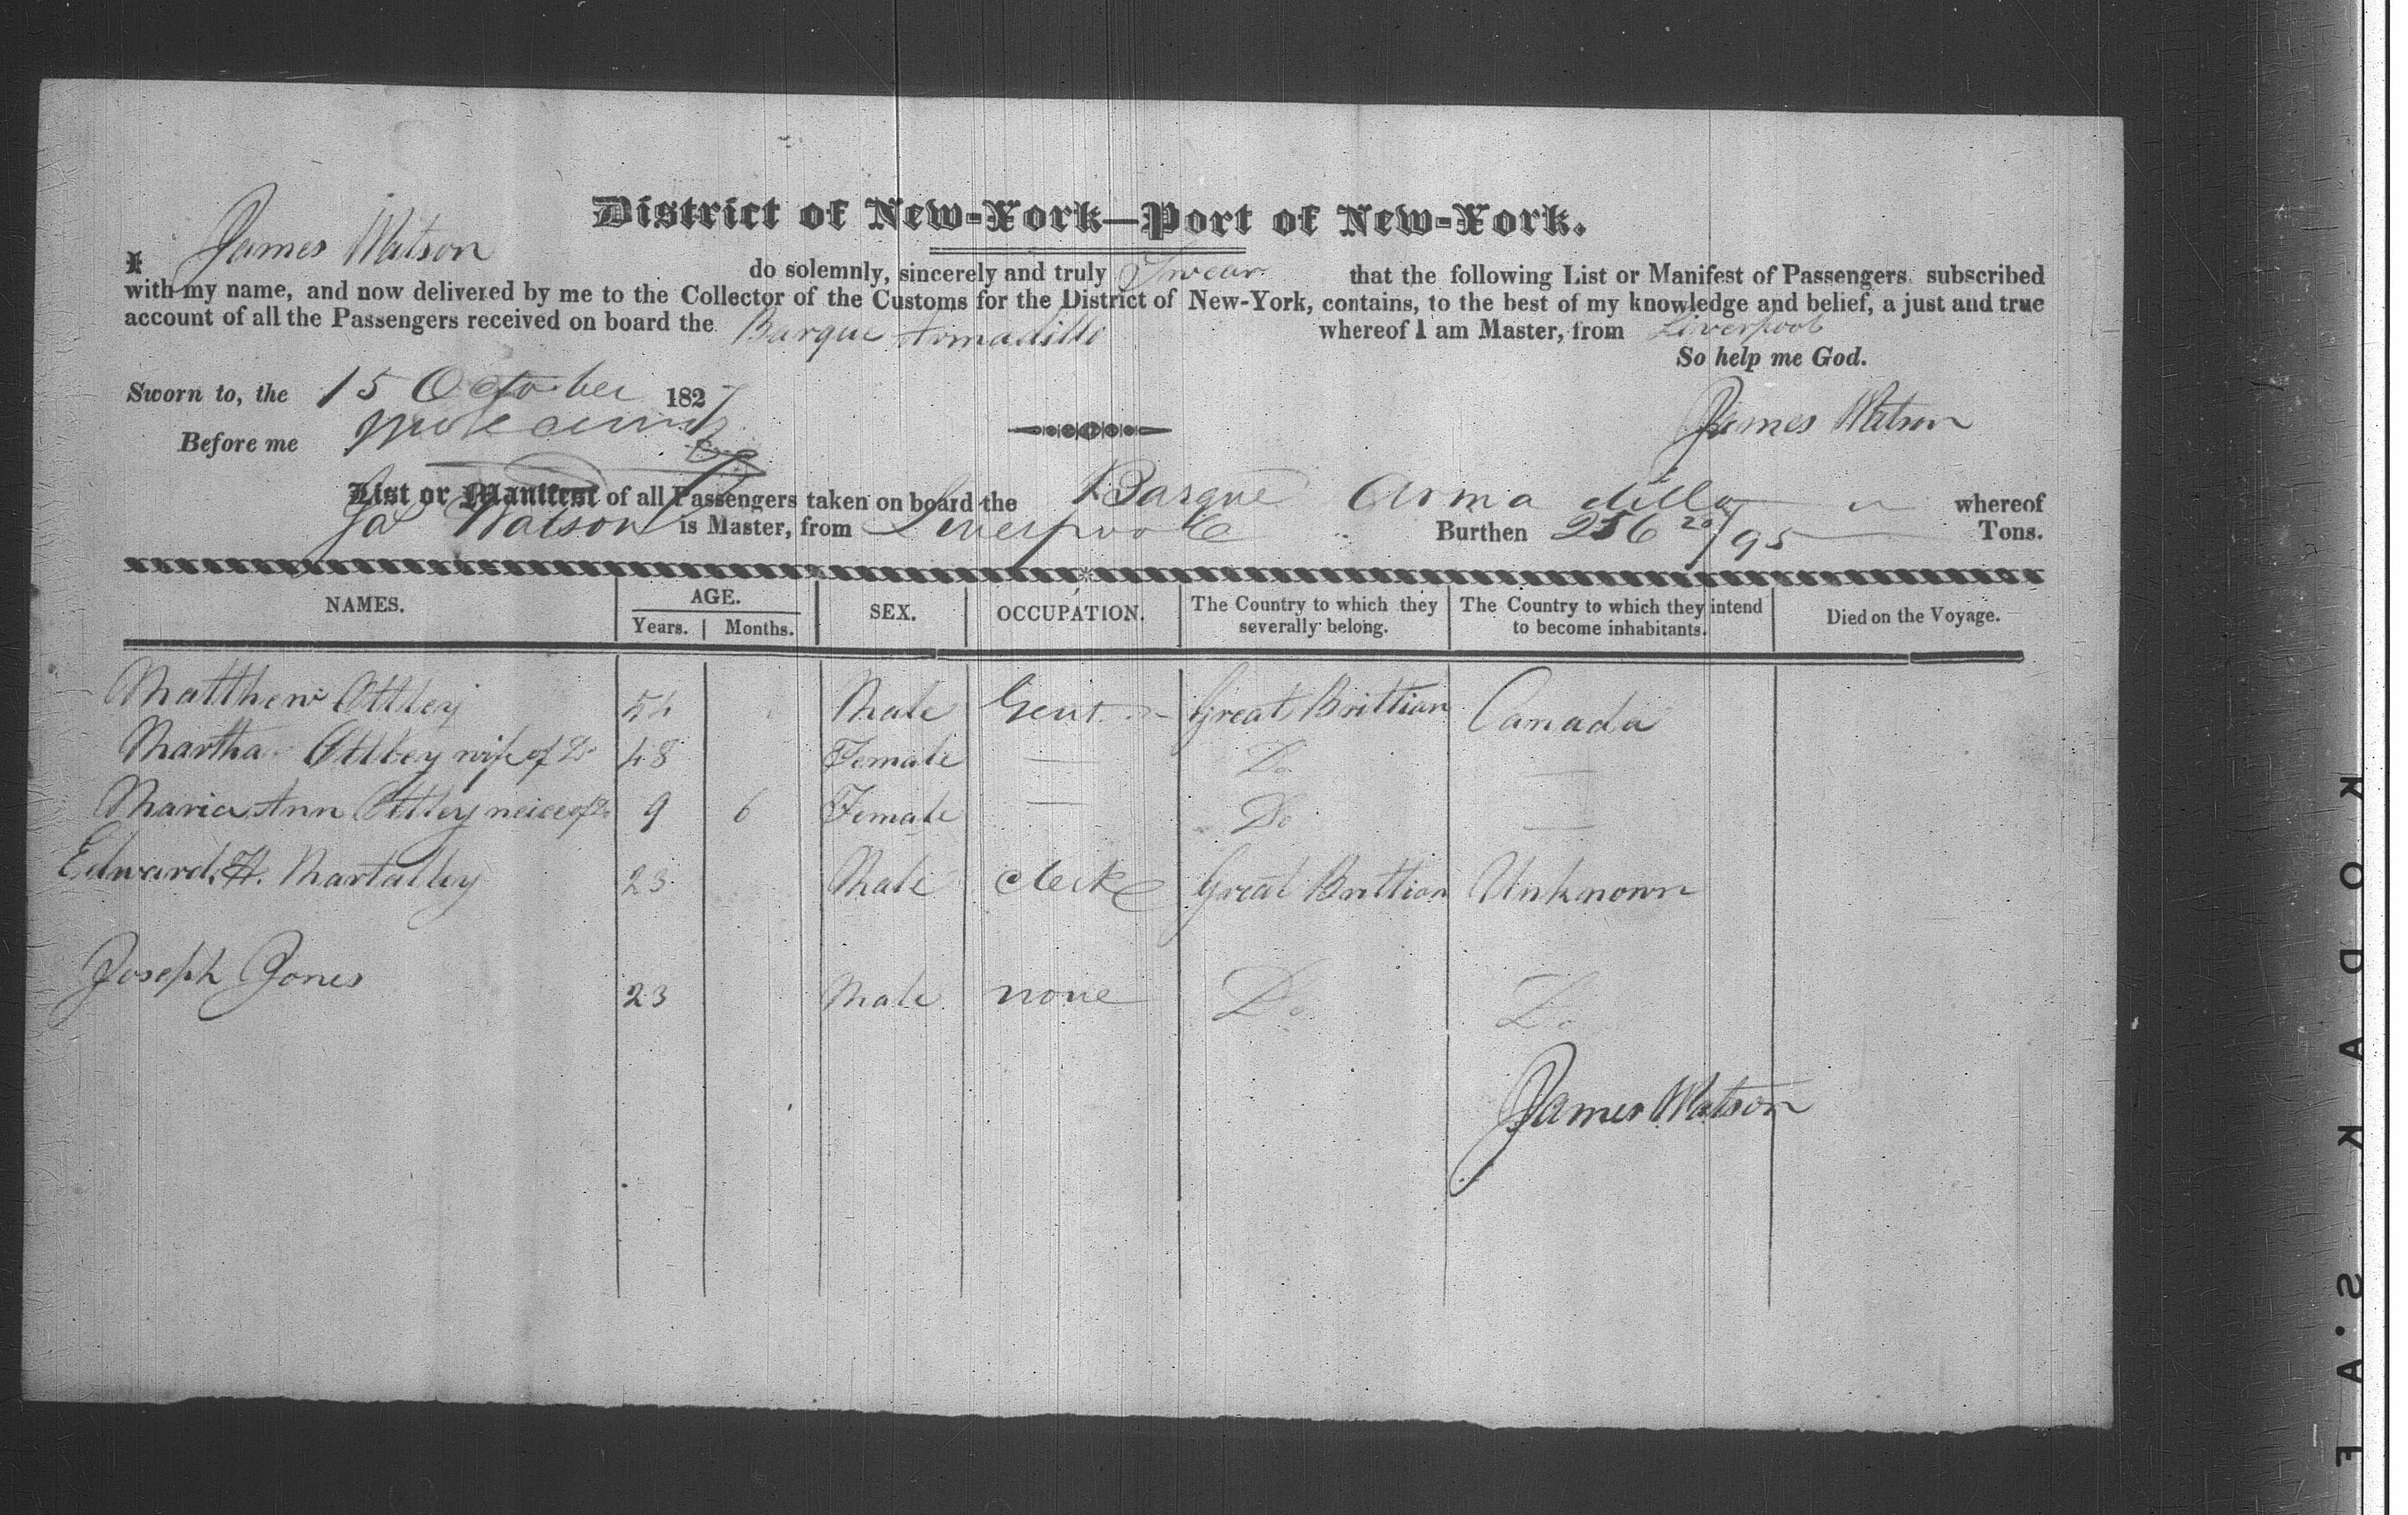 District of New-York—Port of New-York.
I James Watson do solemnly, sincerely and truly Swear that the following List or Manifest of Passengers subscribed
with my name, and now delivered by me to the Collector of the Customs for the District of New-York, contains, to the best of my knowledge and belief, a just and true
account of all the Passengers received on board the Barque Armadillo whereof I am Master, from Liverpool
So help me God.
Sworn to, the 15 October 1827
James Watson
Before me
List or Manifest of all Passengers taken on board the Barque Armadillo whereof
Jas Watson is Master, from Liverpool Burthen 256 20/95 Tons.
NAMES. AGE. SEX. OCCUPATION. The Country to which they severally belong. The Country to which they intend to become inhabitants. Died on the Voyage.
Years. Months.
Matthew Ottley 54 Male Gent. Great Brittian Canada
Martha Ottley wife of Do 48 Female — Do —
Maria Ann Ottley neice of Do 9 6 Female — Do —
Edward H. Martalley 23 Male Clerk Great Brittian Unknown
Joseph Jones 23 Male none Do Do
James Watson
KODAK S.A.F